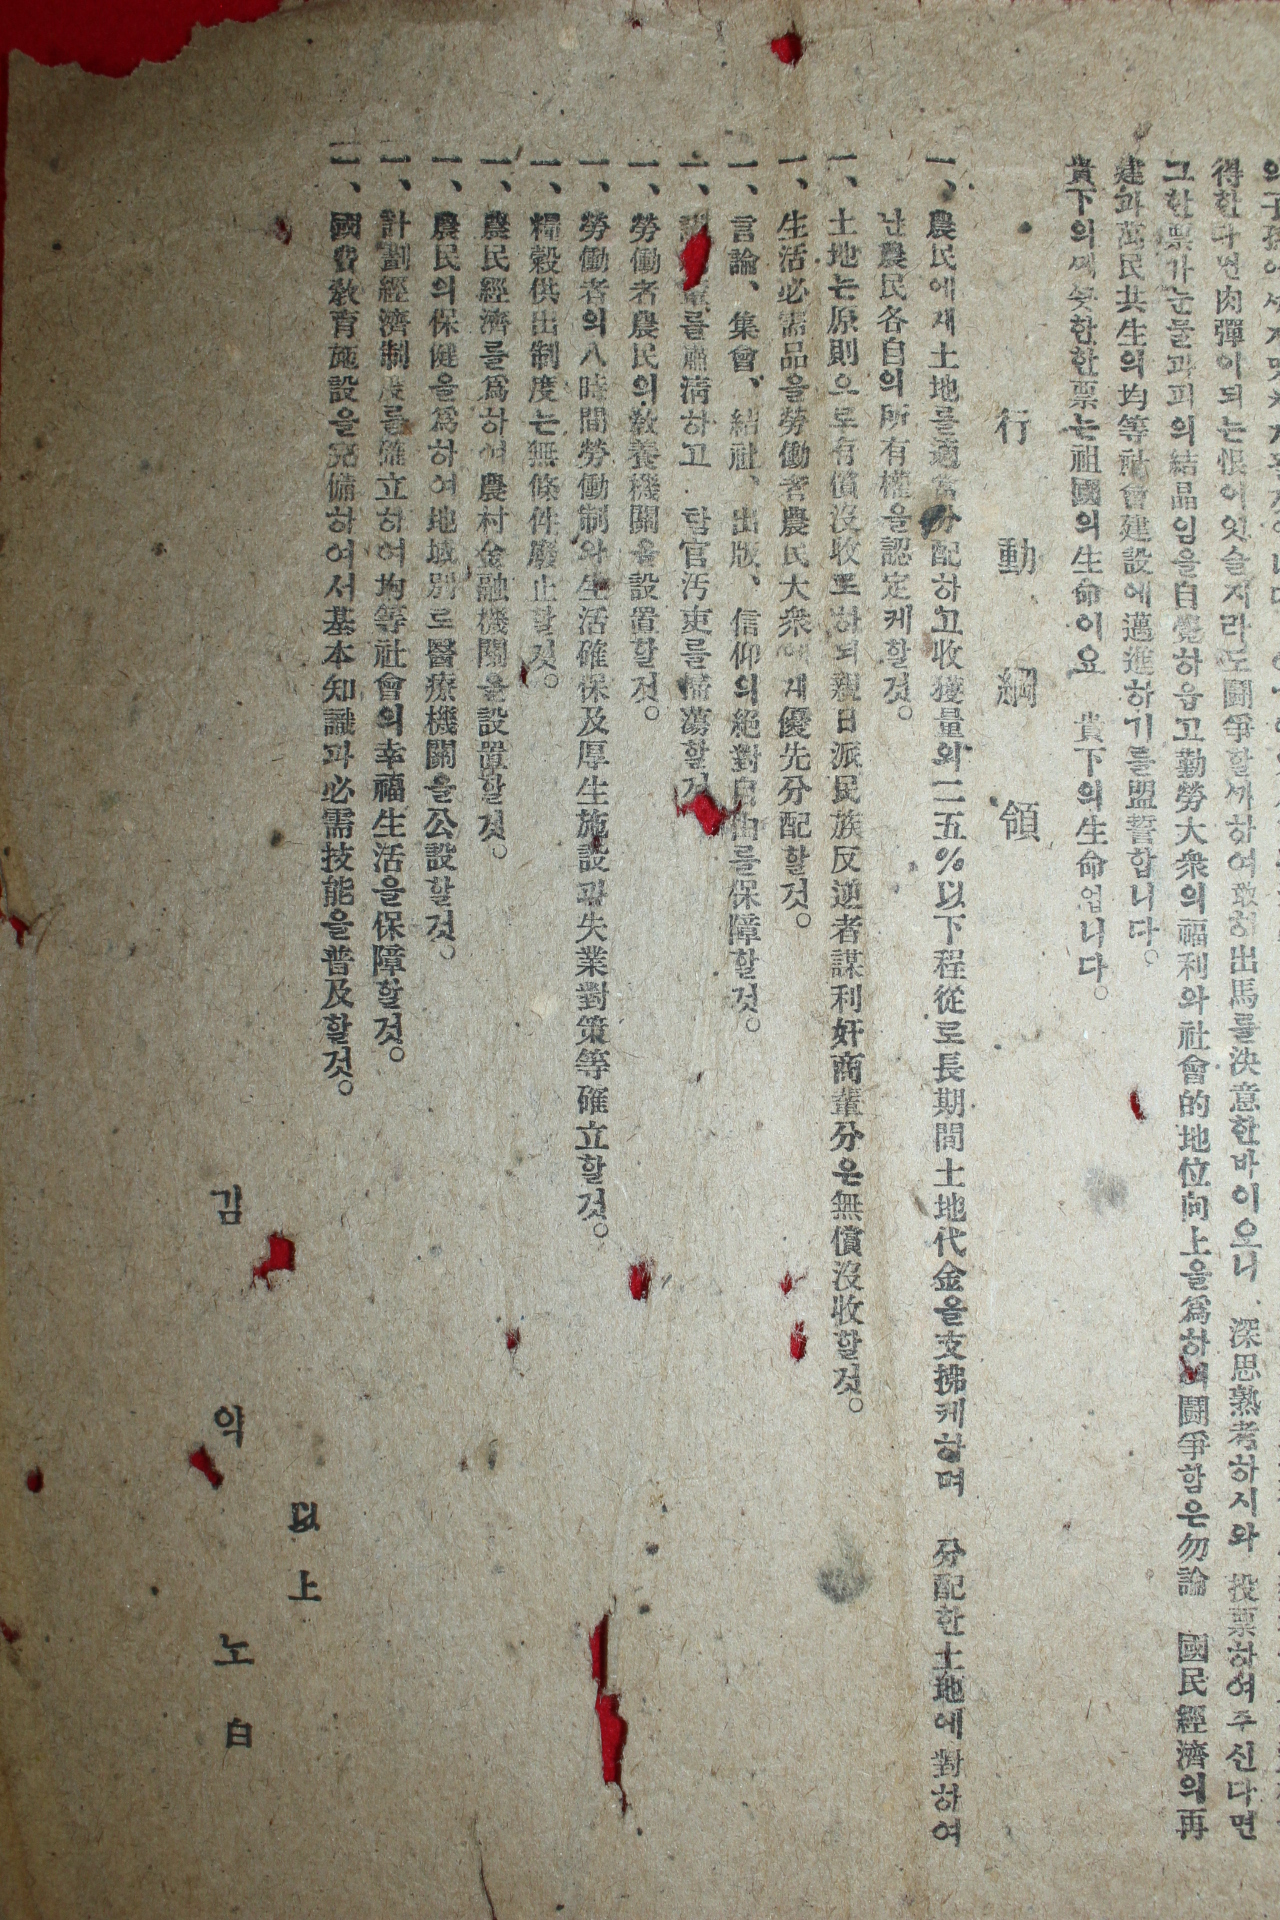 得한다면肉彈이되는恨이잇슬지라도鬪爭할때하여敢히出馬를決意한바이오니 深思熟考하시와 投票하여주신다면
그한票가눈물과피의結晶임을自覺하옵고勤勞大衆의福利와社會的地位向上을爲하여鬪爭함은勿論 國民經濟의再
建과萬民共生의均等社會建設에邁進하기를盟誓합니다。
貴下의깨끗한한票는祖國의生命이요 貴下의生命업니다。
行動綱領
一、農民에게土地를適當分配하고收獲量의二五%以下程從로長期間土地代金을支拂케하며 分配한土地에對하여
난農民各自의所有權을認定케할것。
一、土地는原則으로有償沒收로하되親日派民族反逆者謀利奸商輩分은無償沒收할것。
一、生活必需品을勞働者農民大衆에게優先分配할것。
一、言論、集會、結社、出版、信仰의絕對自由를保障할것。
一、謀 輩를肅淸하고 탐官汚吏를掃蕩할것
一、勞働者農民의敎養機關을設置할것。
一、勞働者의八時間勞働制와生活確保及厚生施設과失業對策等確立할것。
一、糧穀供出制度는無條件廢止할것。
一、農民經濟를爲하여農村金融機關을設置할것。
一、農民의保健을爲하여地域別로醫療機關을公設할것。
一、計劃經濟制度를確立하여均等社會의幸福生活을保障할것。
一、國費敎育施設을完備하여서基本知識과必需技能을普及할것。
以上
김약노 白